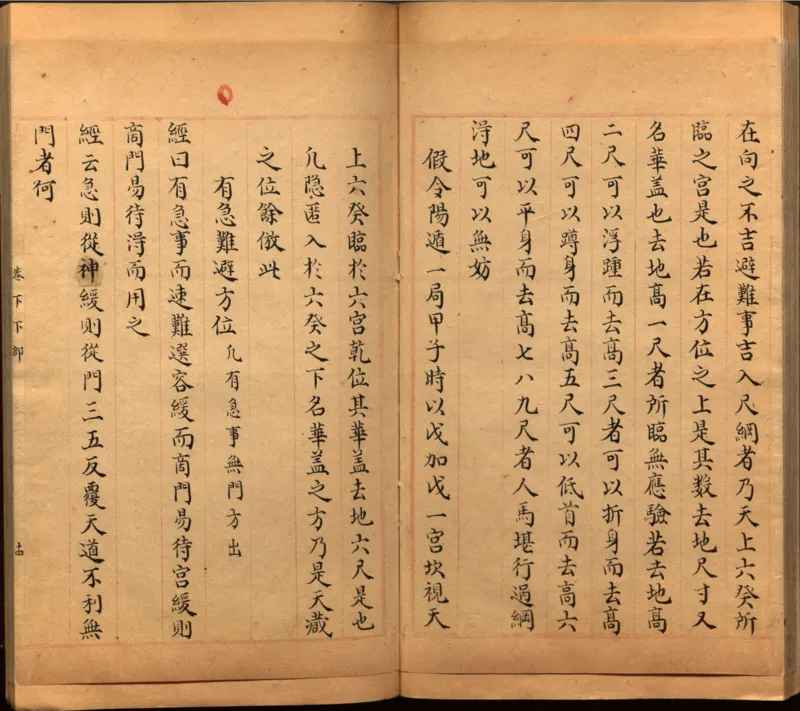 在向之不吉避難事吉入尺綱者乃天上六癸所
臨之宮是也若在方位之上是其数去地尺寸又
名華盖也去地髙一尺者所臨無應驗若去地髙
二尺可以浮踵而去髙三尺者可以折身而去髙
四尺可以蹲身而去髙五尺可以低首而去高六
尺可以平身而去髙七八九尺者人馬堪行過綱
淂地可以無妨
假令陽遁一局甲子時以戊加戊一宮坎視天
上六癸臨於六宮乾位其華盖去地六尺是也
凢隐匿入於六癸之下名華盖之方乃是天藏
之位餘倣此
有急難避方位凢有急事無門方出
經曰有急事而速難選容緩而商門易待宮緩則
商門易待淂而用之
經云急則從神緩則從門三五反覆天道不利無
門者何
卷下下